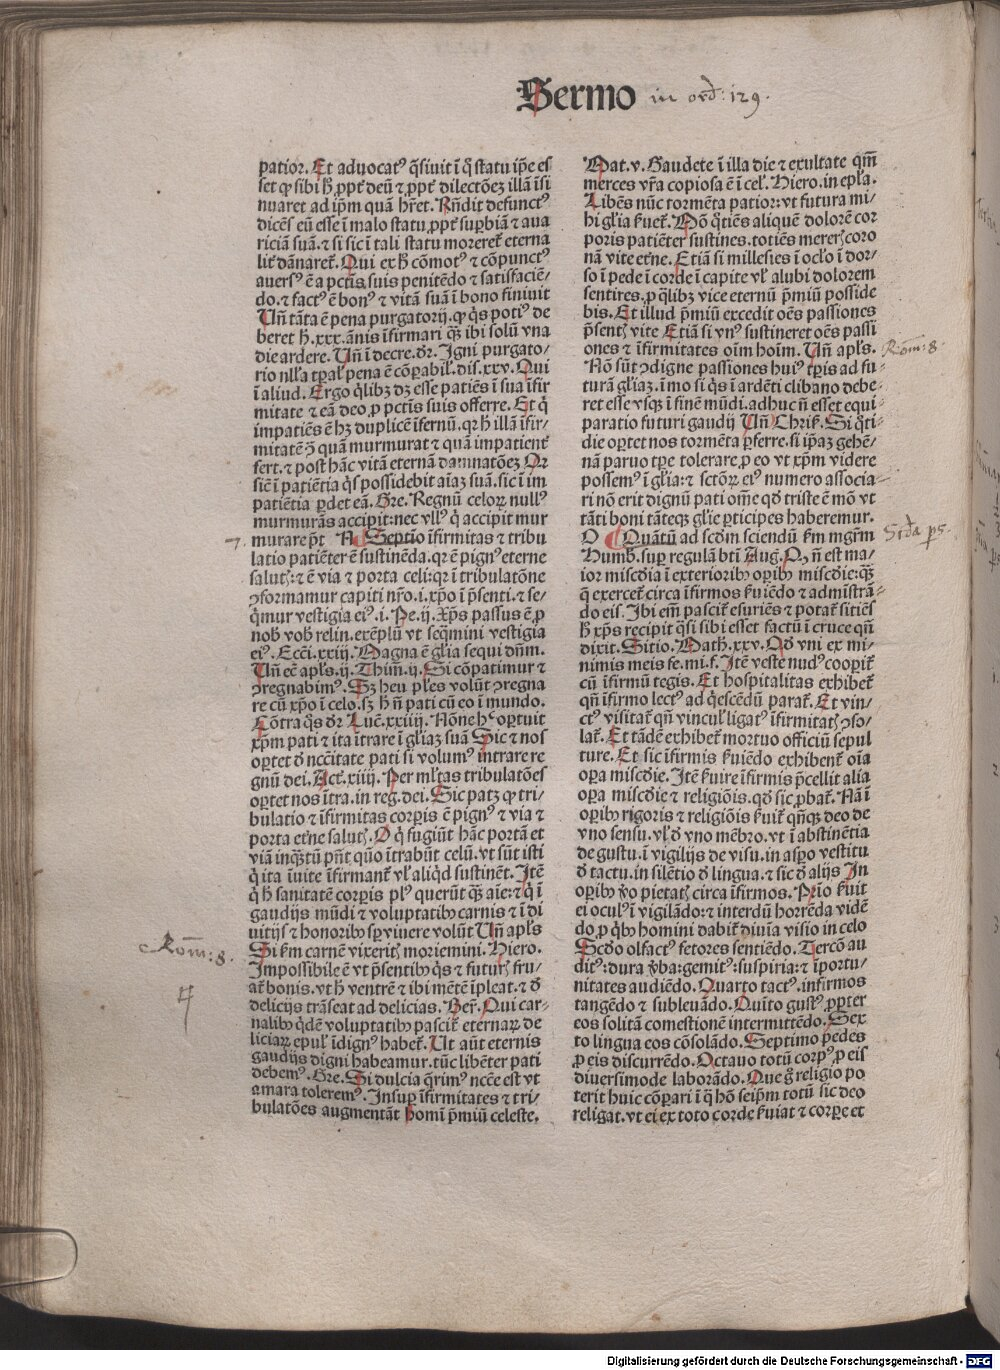 Sermo in ord: 129.
patior. Et advocatꝰ q̄siuit ī q̄ statu ip̄e es
set ꝙ sibi h̄ ꝓpt̄ deū ⁊ ꝓpt̄ dilectōeꝫ illā īsi
nuaret ad ip̄m quā hr̄et. Rn̄dit defunctꝰ
dicēs eū esse ī malo statu ꝓpt̄ suꝑbiā ⁊ aua
riciā suā. ⁊ si sic ī tali statu moreret̄ eterna
lit̄ dānaret̄. Qui ex h̄ cōmotꝰ ⁊ cōpunctꝰ
auersꝰ ē a pctīs suis penitēdo ⁊ satisfaciē/
do. ⁊ factꝰ ē bonꝰ ⁊ vitā suā ī bono finiuit
Un̄ tāta ē pena purgatorij. ꝙ q̄s potiꝰ de
beret h̄ .xxx. ānis īfirmari qꝫ̄ ibi solū vna
die ardere. Un̄ ī decre. dr̄. Igni purgato/
rio nlľa tꝑal̓ pena ē cōꝑabil̓. dis. xxv. Qui
ī aliud. Ergo q̄libꝫ dꝫ esse patiēs ī sua īfir
mitate ⁊ eā deo ꝓ pctīs suis offerre. Et q̄
impatiēs ē hꝫ duplicē īfernū. qꝛ h̄ illā īfir/
mitatē ꝯ̄ quā murmurat ⁊ quā impatient̄
fert. ⁊ post hāc vitā eternā damnatōeꝫ Qꝛ
siē ī patiētia q̄s possidebit aīaꝫ suā. sic ī im
patiētia ꝑdet eā. Gre. Regnū celoꝝ nullꝰ
murmurās accipit: nec vllꝰ q̄ accipit mur
7. murare pt̄ N Septio īfirmitas ⁊ tribu
latio patiēter ē sustinēda. qꝛ ē pignꝰ eterne
salutꝭ: ⁊ ē via ⁊ porta celi: qꝛ ī tribulatōne
ꝯformamur capiti nr̄o .i. xp̄o ī p̄senti. ⁊ se/
q̄mur vestigia eiꝰ .i. Pe. ij. Xp̄s passus ē ꝓ
nob̄ vob̄ relin. exēplū vt seq̄mini vestigia
eiꝰ. Ecc̄i. xxiij. Magna ē gľia sequi dn̄m.
Un̄ ec̄ apľs .ij. Thim̄. ij. Si cōpatimur ⁊
ꝯregnabimꝰ. Sꝫ heu pľes volūt ꝯregna
re cū xp̄o ī celo. sꝫ h̄ n̄ pati cū eo ī mundo.
Cōtra q̄s dr̄ Luc̄. xxiiij. Nōne h̄ ̄oportuit
xp̄m pati ⁊ ita ītrare ī gľiaꝫ suā Sic ⁊ nos
oꝑtet ð nccītate pati si volumꝰ intrare re
gnū dei. Act̄. xiiij. Per ml̓tas tribulatōes
oꝑtet nos ītra. in reg. dei. Sic patꝫ ꝙ tri/
bulatio ⁊ īfirmitas corꝑis ē pignꝰ ⁊ via ⁊
porta etīne salutꝭ. O q̄ fugiūt hāc portā et
viā inqꝫ̄tū pn̄t quō ītrabūt celū. vt sūt isti
q̄ ita īuite īfirmant̄ vľ aliq̄d sustinēt. Itē
q̄ h̄ sanitatē corꝑis plꝰ querūt qꝫ̄ aīe: ⁊ q̄ ī
gaudijs mūdi ⁊ voluptatibꝫ carnis ⁊ ī di
uitijs ⁊ honoribꝫ sꝑ viuere volūt Un̄ apľs
Rom̄: 8. Si ẜm carnē vixeritꝭ moriemini. Hiero.
Impossibile ē vt p̄sentibꝫ q̄s ⁊ futurꝭ fru/
at̄ bonis. vt h̄ ventrē ⁊ ibi mētē īpleat. ⁊ ð
delicijs trāseat ad delicias. Ber̄. Qui car
nalibꝫ q̄dē voluptatibꝫ pascit̄ eternaꝝ de
liciaꝝ epul̓ īdignꝰ habet̄. Ut aūt eternis
gaudijs digni habeamur. tūc libēter pati
debemꝰ. Gre. Si dulcia q̄rimꝰ ncc̄e est vt
amara toleremꝰ. Insuꝑ īfirmitates ⁊ tri/
bulatōes augmentāt homī p̄miū celeste.
Mat. v. Gaudete ī illa die ⁊ exultate qm̄
merces vr̄a copiosa ē ī cel̓. Hiero. in epľa.
Libēs nūc tormēta patior: vt futura mi/
hi gľia ẜuet̄. Nō q̄tiēs aliquē dolorē cor
poris patiēter sustines. totiēs mererꝭ coro
nā vite etn̄e. Etiā si millesies ī ocľo ī dor/
so ī pede ī corde ī capite vľ alubi dolorem
sentires. ꝓ q̄libꝫ vice eternū p̄miū posside
bis. Et illud p̄miū excedit oēs passiones
p̄sentꝭ vite Etiā si vnꝰ sustineret oēs passi
ones ⁊ īfirmitates oīm hoīm. Un̄ apľs. Rom̄: 8.
Nō sūt ꝯdigne passiones huiꝰ tꝑis ad fu/
turā gľiaꝫ. īmo si q̄s ī ardēti clibano debe/
ret esse vsqꝫ ī finē mūdi. adhuc n̄ esset equi/
paratio futuri gaudij Un̄ Chriẜ. Si q̄ti/
die oꝑtet nos tormēta ꝑferre. si ip̄aꝫ gehē/
nā paruo tꝑe tolerare. ꝓ eo vt xp̄m videre
possemꝰ ī gľia: ⁊ sctōꝝ eiꝰ numero associa/
ri nō erit dignū pati om̄e qð triste ē mō vt
tāti boni tāteqꝫ gľie ꝑticipes haberemur.
O Quātū ad scðm sciendū ẜm mgr̄m Scd̄a ꝑs.
Humb̄. suꝑ regulā btī Aug. Qꝫ n̄ est ma/
ior miscðia ī exterioribꝫ oꝑibꝫ miscðie: qꝫ̄
q̄ exercet̄ circa īfirmos ẜuiēdo ⁊ admīstrā/
do eis. Ibi em̄ pascit̄ esuriēs ⁊ potat̄ sitiēs
h̄ xp̄s recipit q̄si sibi esset factū ī cruce qn̄
dixit. Sitio. Math̄. xxv. Qð vni ex mi/
nimis meis fe. mi. f. Itē veste nudꝰ cooꝑit̄
cū īfirmū tegis. Et hospitalitas exhibet̄
qn̄ īfirmo lectꝰ ad q̄escēdū parat̄. Et vin/
ctꝰ visitat̄ qn̄ vincul̓ ligatꝰ īfirmitatꝭ ꝯso/
lat̄. Et tādē exhibet̄ mortuo officiū sepul
ture. Et sic īfirmis ẜuiēdo exhibent̄ oīa
oꝑa miscðie. Itē ẜuire īfirmis p̄cellit alia
oꝑa miscðie ⁊ religiōis. qð sic ꝓbat̄. Nā ī
oꝑibꝫ rigoris ⁊ religiōis ẜuit̄ qn̄qꝫ deo de
vno sensu. vľ ð vno mēbro. vt ī abstinētia
de gustu. ī vigilijs de visu. in asꝑo vestitu
ð tactu. in silētio ð lingua. ⁊ sic ð alijs In
oꝑibꝫ v̄o pietatꝭ circa īfirmos. Prīo ẜuit
ei oculꝰ ī vigilādo: ⁊ interdū horrēda vidē
do. ꝓ q̄bꝫ homini dabit̄ diuīa visio in celo
Scðo olfactꝰ fetores sentiēdo. Tercō au
ditꝰ: dura v̄ba: gemitꝰ: suspiria: ⁊ īportu/
nitates audiēdo. Quarto tactꝰ. infirmos
tangēdo ⁊ subleuādo. Quīto gustꝰ ꝓpter
eos solitā comestionē intermittēdo. Sex
to lingua eos cōsolādo. Septimo pedes
ꝓ eis discurrēdo. Octauo totū corpꝰ ꝓ eis
diuersimode laborādo. Que g̊ religio po
terit huic cōꝑari ī q̄ hō seip̄m totū sic deo
religat. vt ei ex toto corde ẜuiat ⁊ corꝑe et
Digitalisierung gefördert durch die Deutsche Forschungsgemeinschaft - DFG